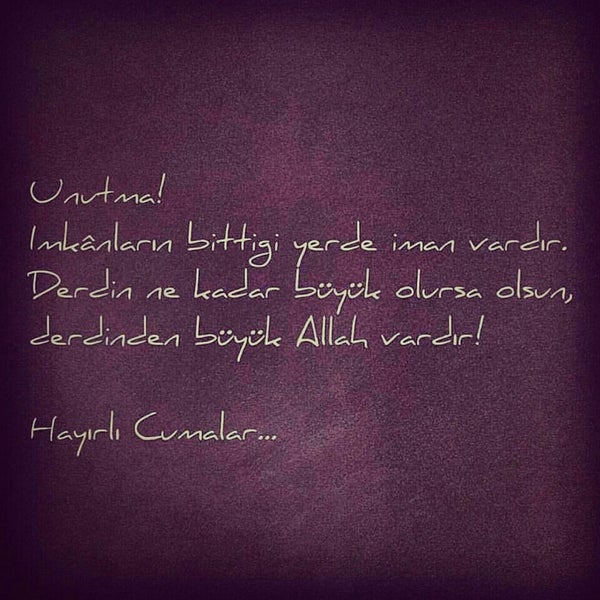 Unutma!
Imkânların bittigi yerde iman vardır.
Derdin ne kadar büyük olursa olsun,
derdinden büyük Allah vardır!
Hayırlı Cumalar...